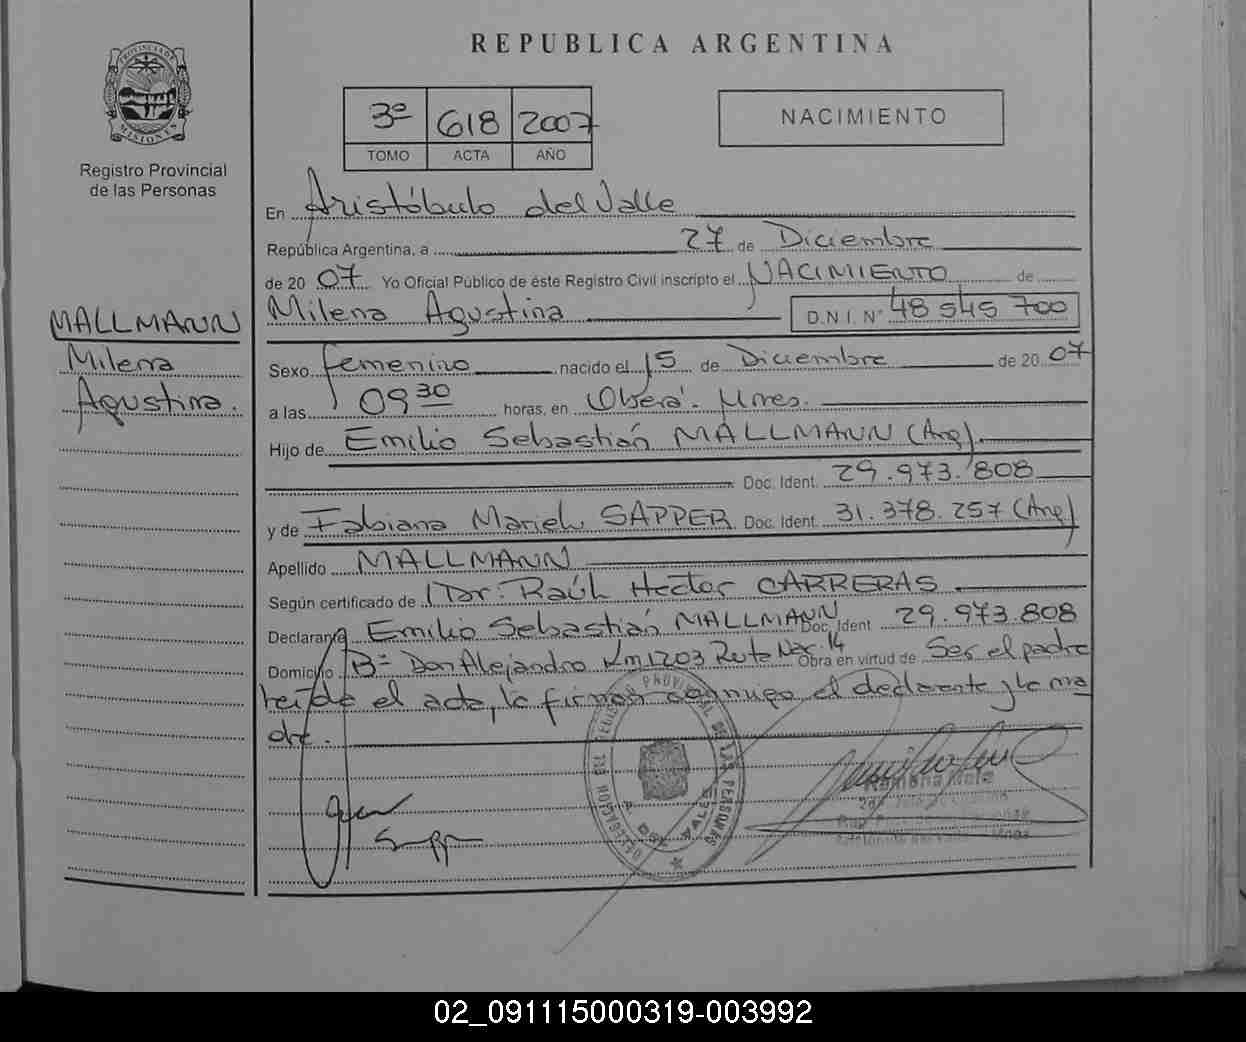 REPUBLICA ARGENTINA
PROVINCIA DE MISIONES
Registro Provincial
de las Personas
3º 618 2007
TOMO ACTA AÑO
NACIMIENTO
En Aristóbulo del Valle
República Argentina, a 27 de Diciembre
de 2007 Yo Oficial Público de éste Registro Civil inscripto el NACIMIENTO de
Milena Agustina D.N.I. Nº 48 545 700
MALLMANN
Milena
Agustina.
Sexo femenino nacido el 15 de Diciembre de 2007
a las 09 30 horas, en Oberá. Mnes.
Hijo de Emilio Sebastián MALLMANN (Arg).
Doc. Ident. 29.973.808
y de Fabiana Mariela SAPPER Doc. Ident. 31.378.257 (Arg)
Apellido MALLMANN
Según certificado de Dr. Raúl Hector CARRERAS
Declarante Emilio Sebastián MALLMANN Doc. Ident 29.973.808
Domicilio Bº Don Alejandro Km 1203 Ruta Nac. 14 Obra en virtud de Ser el padre
leída el acta, la firman conmigo el declarante y la ma
dre.
DELEGACION DEL REG. PROVINCIAL DE LAS PERSONAS
A. DEL VALLE
02_091115000319-003992